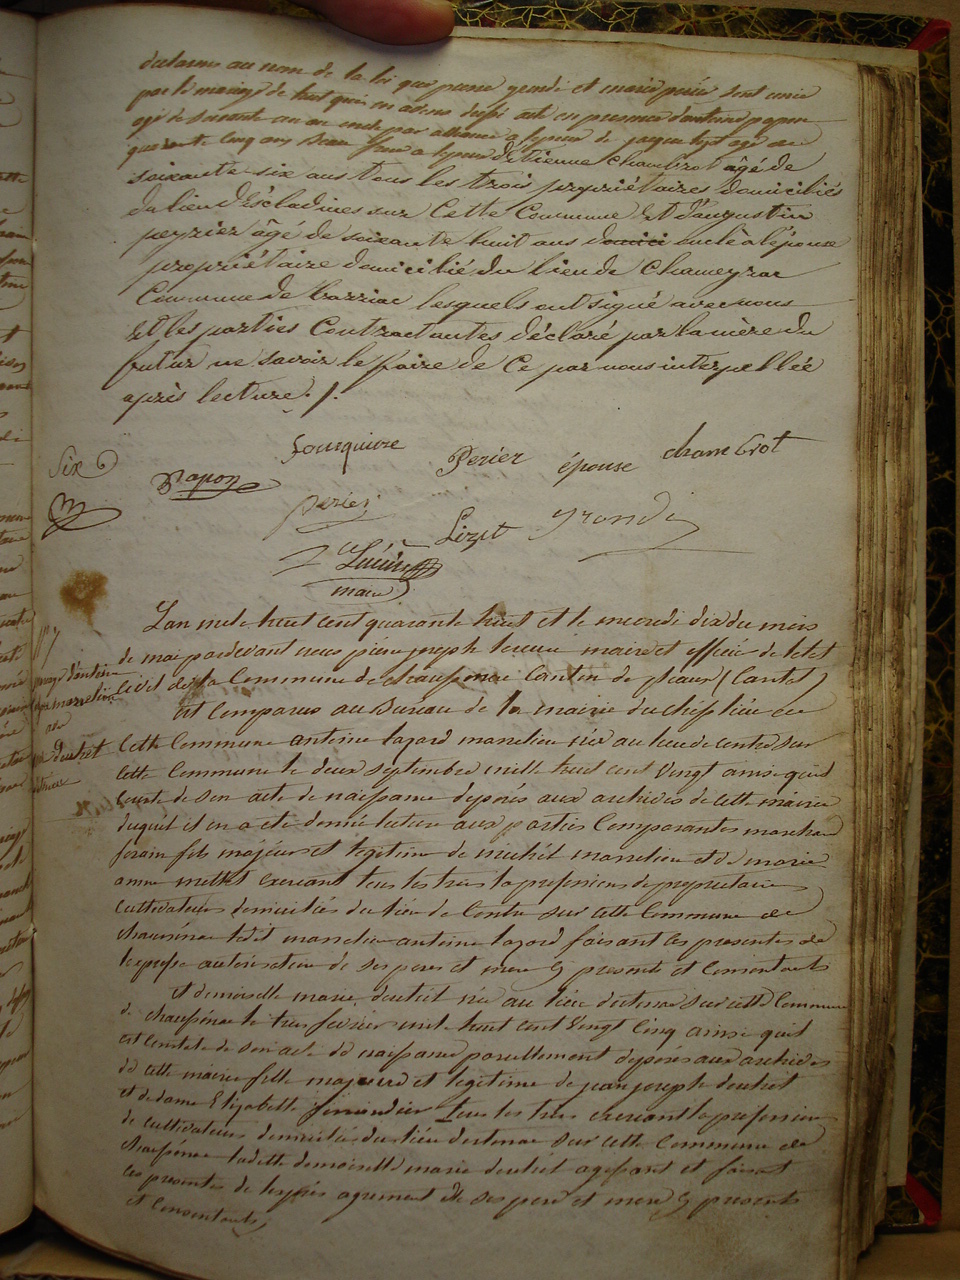 declarons au nom de la loi que pierre grandi et marie perier sont unis
par le mariage de tout quoi en avons dressé acte en presence d'antoine papon
agé de soixante un an oncle par alliance a lepoux de jaque lizet agé de
quarante cinq ans beau frere a lepoux d'Etienne chambrot âgé de
soixante-six ans tous les trois propriétaires domiciliés
du lieu d'Escladines sur Cette Commune Et d'augustin
peyrier âgé de soixante huit ans domici oncle à l'épouse
propriétaire domicilié du lieu de Chameyrac
Commune de barriac lesquels ont signé avec nous
Et les parties Contractantes déclaré par la mère du
futur ne savoir le faire de Ce par nous interpellée
après lecture ./.
Six
Papon
Fourquiore
Perier épouse
chambrot
perier
Lizet
grandi
maire
N° 7
L'an mil huit cent quarante huit et le mercredi dix du mois
de mai pardevant nous pierre joseph maire et officier de letat
Civil de la Commune de chaussenac Canton de pleaux (Cantal)
est Comparus au Bureau de la mairie du chef lieu de
Cette Commune antoine lazard manelieu né au lieu de contre sur
Cette Commune le deux septembre mille huit cent vingt ainsi quil
Conste de son acte de naissance déposés aux archives de cette mairie
duquel il en a ete donné lecture aux parties Comparantes marchand
forain fils majeur et legitime de michel manelieu et de marie
anne mettet exercant tous les trois la profession de proprietaires
cultivateurs domiciliés du lieu de Contre sur cette Commune de
chaussenac ledit manelieu antoine lazard faisant les presentes de
lexpresse autorisation de ses pere et mere y presents et Consentants
et demoiselle marie doutiet née au lieu destenac sur cette Commune
de chaussenac le trois fevrier mil huit cent vingt cinq ainsi quil
est Constaté de son acte de naissance pareillement déposés aux archives
de cette mairie fille majeure et legitime de jean joseph doutiet
et de dame Elizabette tous les trois exercant la profession
de cultivateurs domiciliés du lieu destenac sur cette Commune de
chaussenac ladette demoiselle marie doutiet agissant et faisant
les presentes de lexprès agrement de ses pere et mere y presents
et Consentants